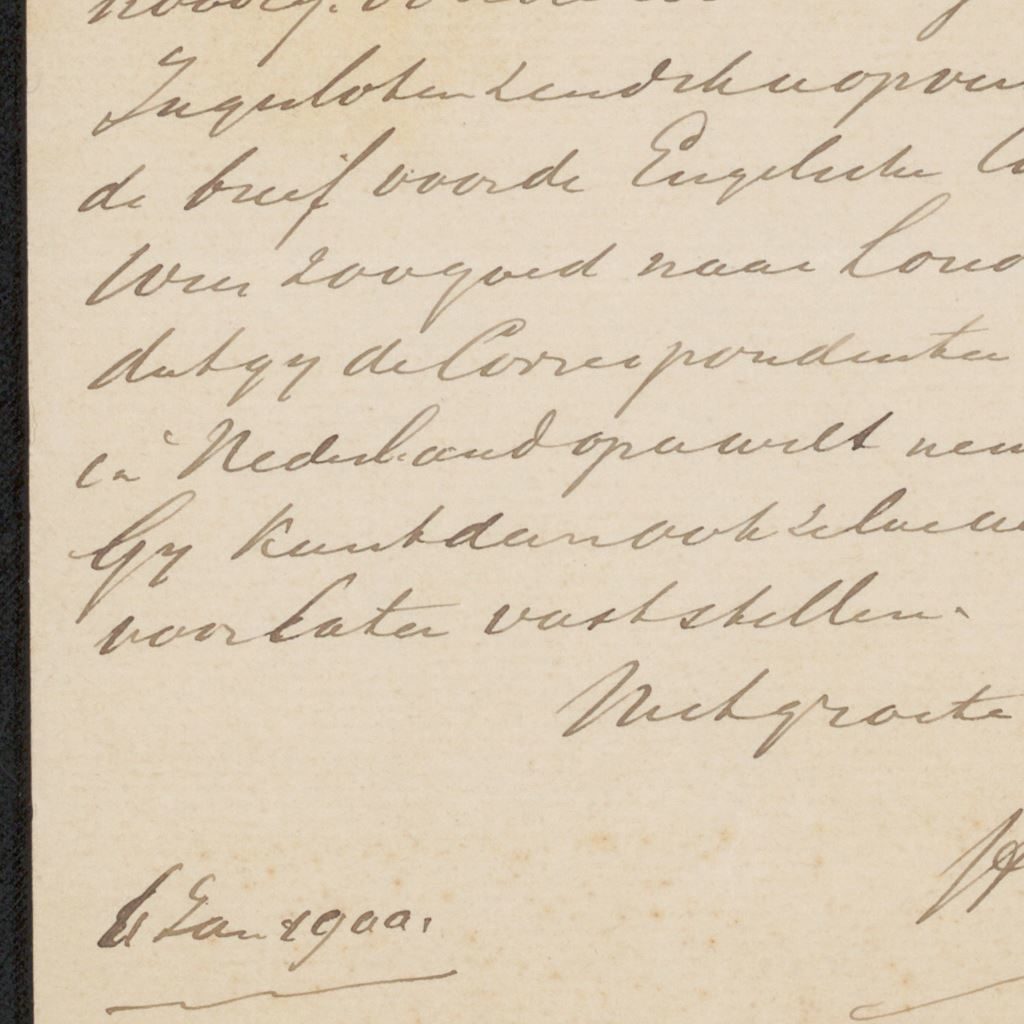 Ingesloten zend ik u op verz
de brief voor de Engelsche
Wees zoo goed naar Lond
dat gy de Correspondentie
in Nederland op u wilt nem
Gy kunt dan ook
voor later vaststellen.
Met groete
6 Jan 1900.